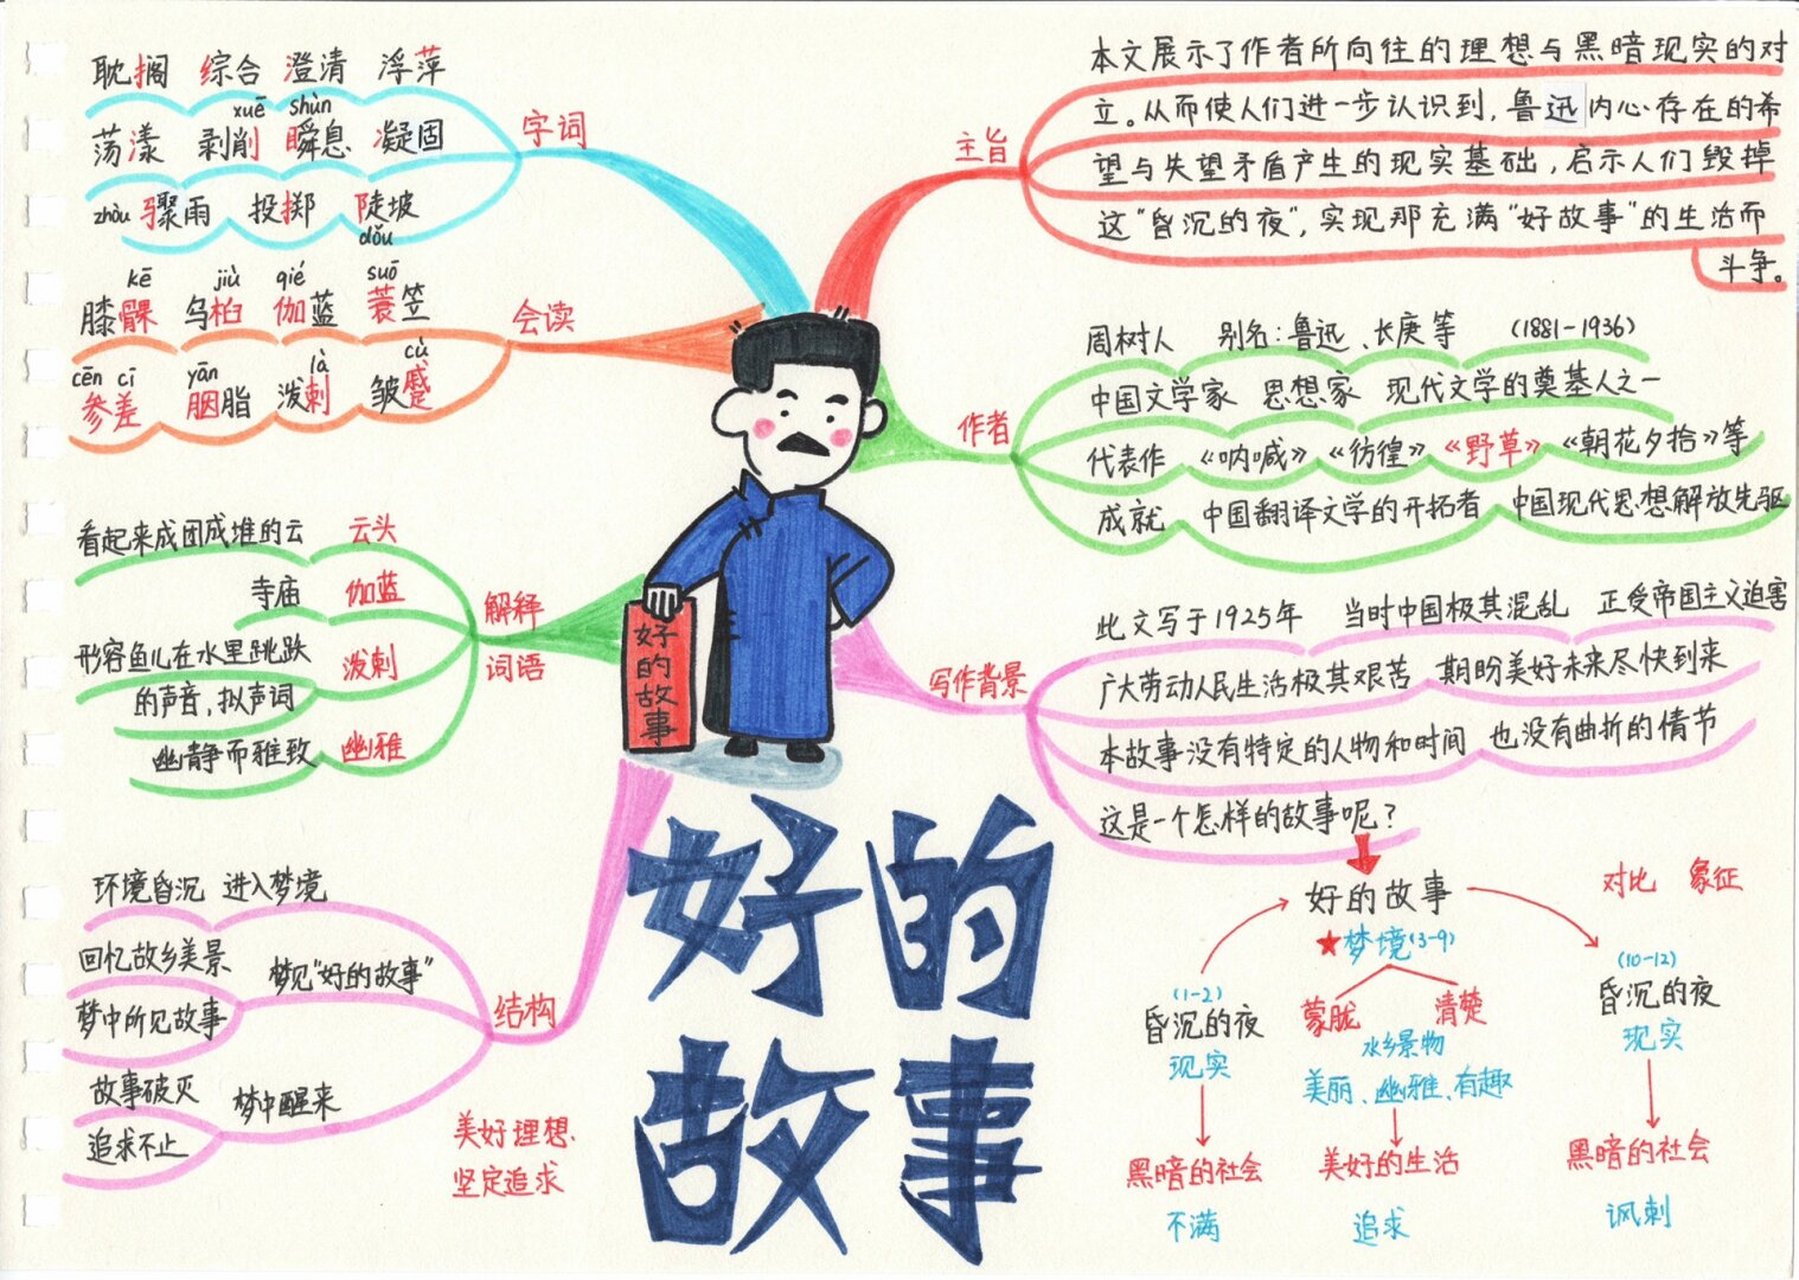 耽搁 综合 澄清 浮萍
xuē shùn
荡漾 剥削 瞬息 凝固
字词
zhòu 骤雨 投掷 陡坡
dǒu
kē jiù qié suō
膝髁 乌桕 伽蓝 蓑笠
会读
cēn cī yān là cù
参差 胭脂 泼剌 皱蹙
看起来成团成堆的云 云头
寺庙 伽蓝
解释
词语
形容鱼儿在水里跳跌
的声音,拟声词
泼剌
幽静而雅致 幽雅
环境昏沉 进入梦境
回忆故乡美景
梦见"好的故事"
梦中所见故事
结构
故事破灭
梦中醒来
追求不止
美好理想、
坚定追求
好的故事
好的
故事
主旨
本文展示了作者所向往的理想与黑暗现实的对
立。从而使人们进一步认识到,鲁迅内心存在的希
望与失望矛盾产生的现实基础,启示人们毁掉
这"昏沉的夜",实现那充满"好故事"的生活而
斗争。
作者
周树人 别名:鲁迅、长庚等 (1881-1936)
中国文学家 思想家 现代文学的奠基人之一
代表作《呐喊》《彷徨》《野草》《朝花夕拾》等
成就 中国翻译文学的开拓者 中国现代思想解放先驱
写作背景
此文写于1925年 当时中国极其混乱 正受帝国主义迫害
广大劳动人民生活极其艰苦 期盼美好未来尽快到来
本故事没有特定的人物和时间 也没有曲折的情节
这是一个怎样的故事呢?
好的故事
对比 象征
★梦境(3-9)
(1-2)
昏沉的夜
现实
黑暗的社会
不满
蒙胧 清楚
水乡景物
美丽、幽雅、有趣
美好的生活
追求
(10-12)
昏沉的夜
现实
黑暗的社会
讽刺